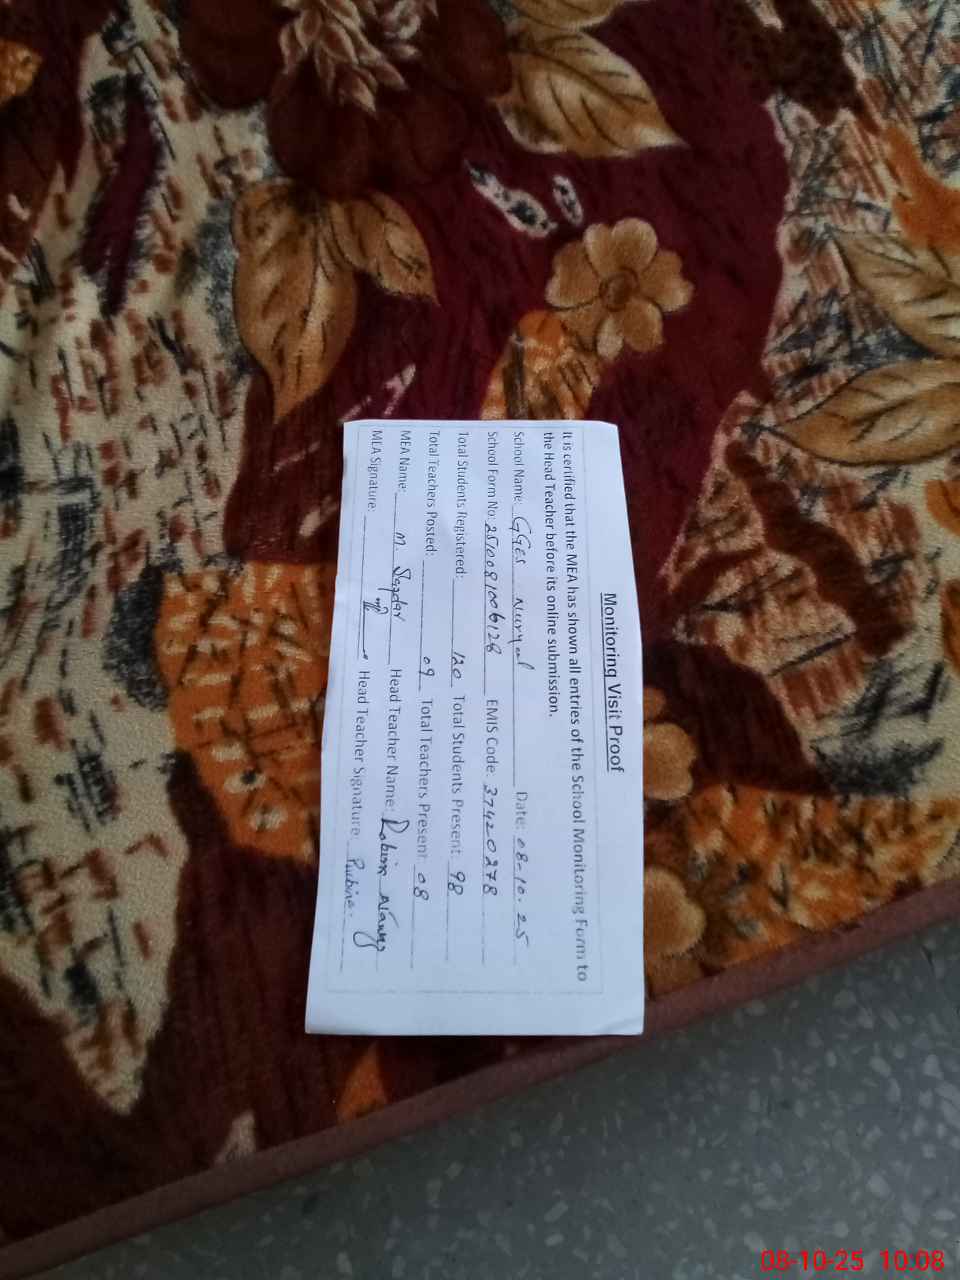 Monitoring Visit Proof
It is certified that the MEA has shown all entries of the School Monitoring Form to
the Head Teacher before its online submission.
School Name: GGES Nuryal Date: 08-10-25
School Form No: 2510081006126 EMIS Code: 37420278
Total Students Registered: 120 Total Students Present: 98
Total Teachers Posted: 09 Total Teachers Present: 08
MEA Name: M. Safdar Head Teacher Name:
MEA Signature: Head Teacher Signature: Rubina
08-10-25 10:08